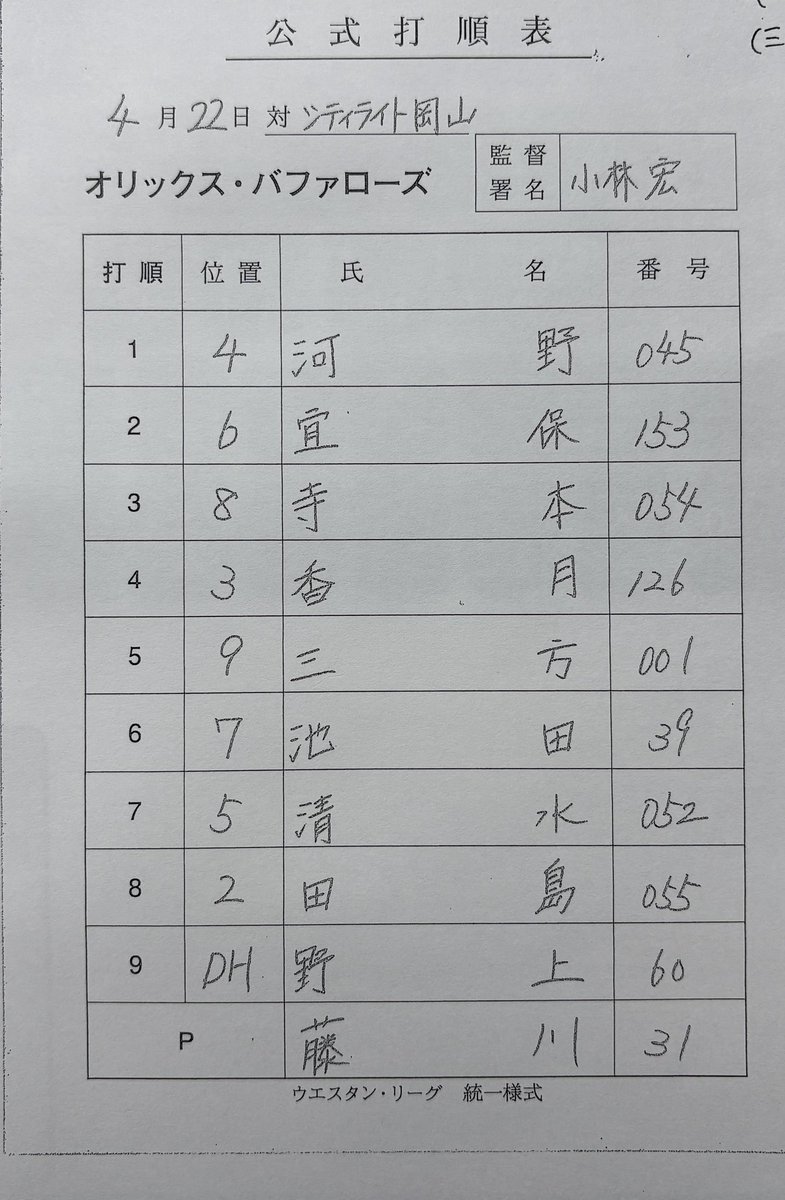 (三
公式打順表
4月22日 対 シティライト岡山
オリックス・バファローズ 監督署名 小林 宏
打順 位置 氏名 番号
1 4 河野 045
2 6 宜保 153
3 8 寺本 054
4 3 香月 126
5 9 三方 001
6 7 池田 39
7 5 清水 052
8 2 田島 055
9 DH 野上 60
P 藤川 31
ウエスタン・リーグ 統一様式